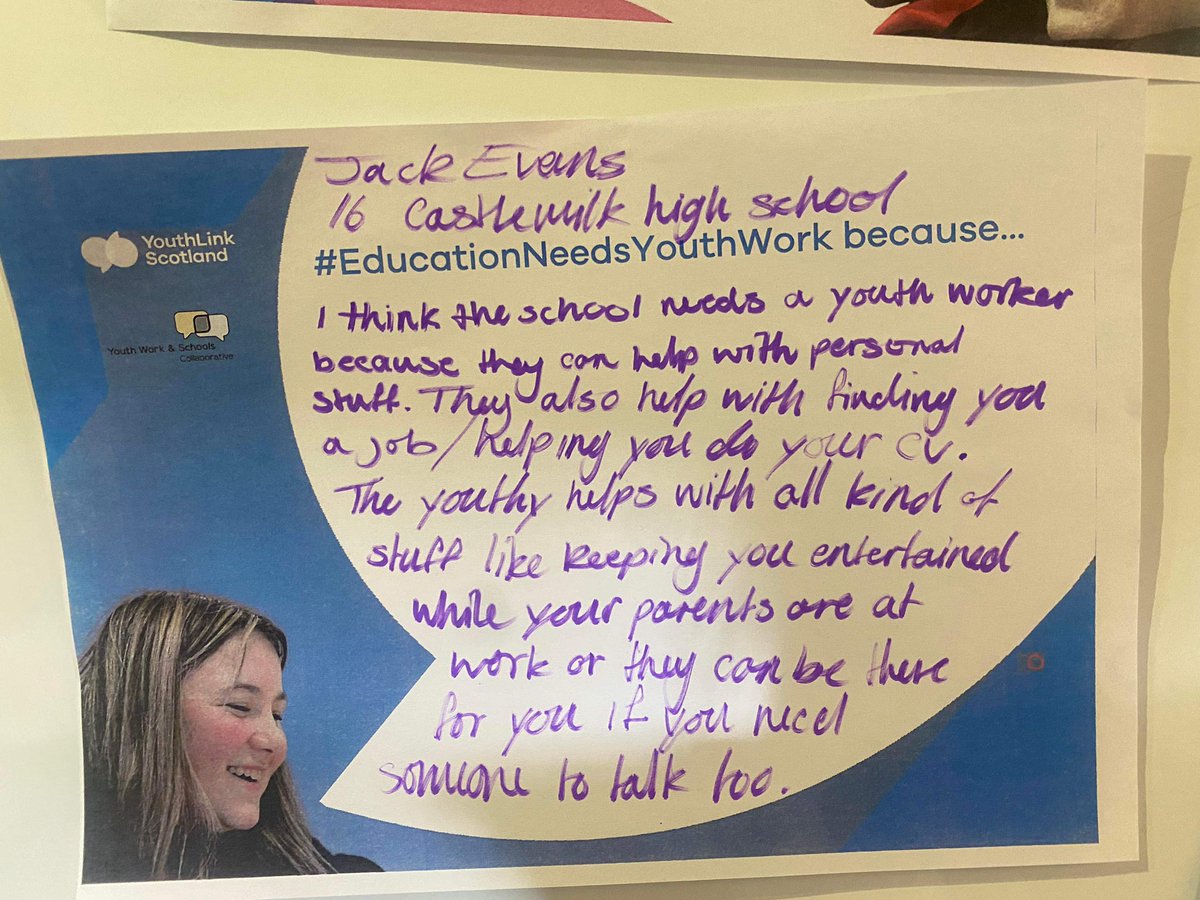 Jack Evans
16 Castlemilk high school
#EducationNeedsYouthWork because...
YouthLink
Scotland
Youth Work & Schools
Collaborative
I think the school needs a youth worker
because they can help with personal
stuff. They also help with finding you
a job/helping you do your cv.
The youthy helps with all kind of
stuff like keeping you entertained
while your parents are at
work or they can be there
for you if you need
someone to talk too.